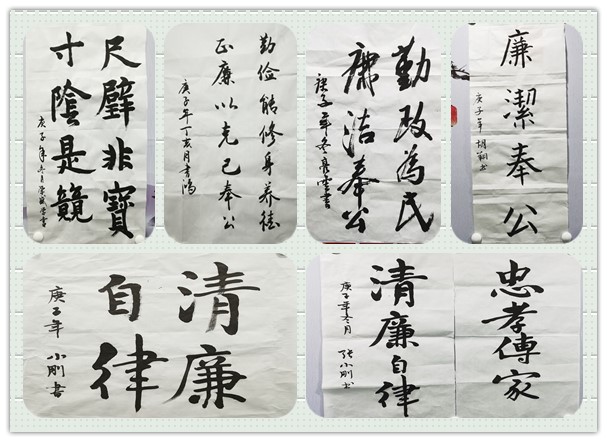 尺璧非寶
寸陰是競
庚子年冬月
勤俭能修身养德
正廉以克己奉公
庚子年丁亥月书鸿
勤政為民
廉洁奉公
庚子年冬
廉潔奉公
庚子年 胡翔书
清廉
自律
庚子年 小刚書
忠孝傳家
清廉自律
庚子年冬月 张小刚书